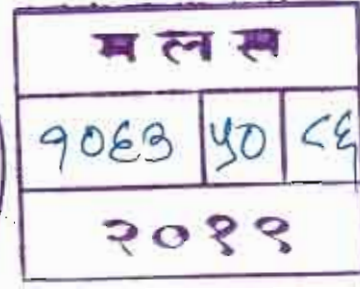 म ल स
१०६३ ५० ८६
२०१९